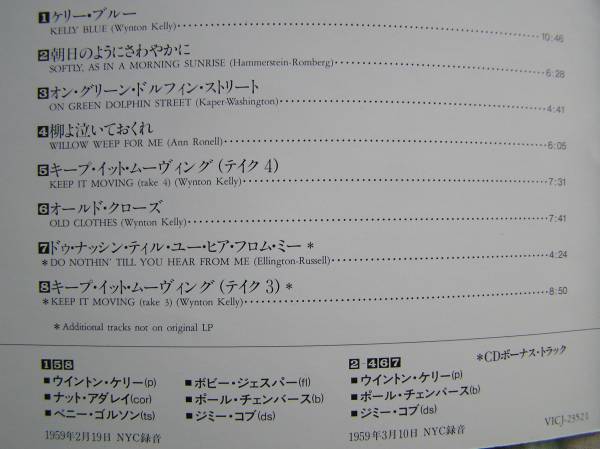 1 ケリー・ブルー
KELLY BLUE (Wynton Kelly) 10:46
2 朝日のようにさわやかに
SOFTLY, AS IN A MORNING SUNRISE (Hammerstein-Romberg) 6:28
3 オン・グリーン・ドルフィン・ストリート
ON GREEN DOLPHIN STREET (Kaper-Washington) 4:41
4 柳よ泣いておくれ
WILLOW WEEP FOR ME (Ann Ronell) 6:05
5 キープ・イット・ムーヴィング (テイク 4)
KEEP IT MOVING (take 4) (Wynton Kelly) 7:31
6 オールド・クローズ
OLD CLOTHES (Wynton Kelly) 7:41
7 ドゥ・ナッシン・ティル・ユー・ヒア・フロム・ミー *
* DO NOTHIN' TILL YOU HEAR FROM ME (Ellington-Russell) 4:24
8 キープ・イット・ムーヴィング (テイク 3) *
* KEEP IT MOVING (take 3) (Wynton Kelly) 8:50
* Additional tracks not on original LP
*CDボーナス・トラック
1 5 8
■ ウイントン・ケリー(p)
■ ナット・アダレイ(cor)
■ ベニー・ゴルソン(ts)
■ ボビー・ジェスパー(fl)
■ ポール・チェンバース(b)
■ ジミー・コブ(ds)
1959年2月19日 NYC録音
2-4 6 7
■ ウイントン・ケリー(p)
■ ポール・チェンバース(b)
■ ジミー・コブ(ds)
1959年3月10日 NYC録音
VICJ-23521